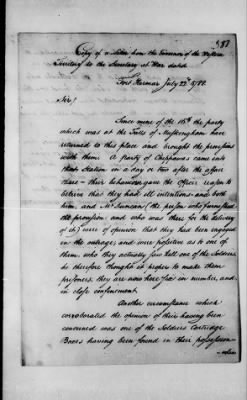 Copy of a letter from the Governor of the Western
Territory to the Secretary at War dated
Fort Harmar July 22d 1788.
Sir/
Since mine of the 16th the party
which was at the Falls of Muskingham have
returned to this place and brought the provisions
with them. A party of Chippawas came into
that station in a day or two after the affair
there – their behaviour gave the Officer reason to
believe that they had ill intentions and both
him and Mr Duncan (the person who furnished
the provision and who was there for the delivery
of it) were of opinion that they had been engaged
in the outrage, and were positive as to one of
them, who they actually saw kill one of the Soldiers
he therefore thought it proper to make them
prisoners, they are now here six in number, and
in close confinement.
Another circumstance which
corroborated the opinion of their having been
concerned was one of the Soldiers Cartridge
Boxes having been found in their possession